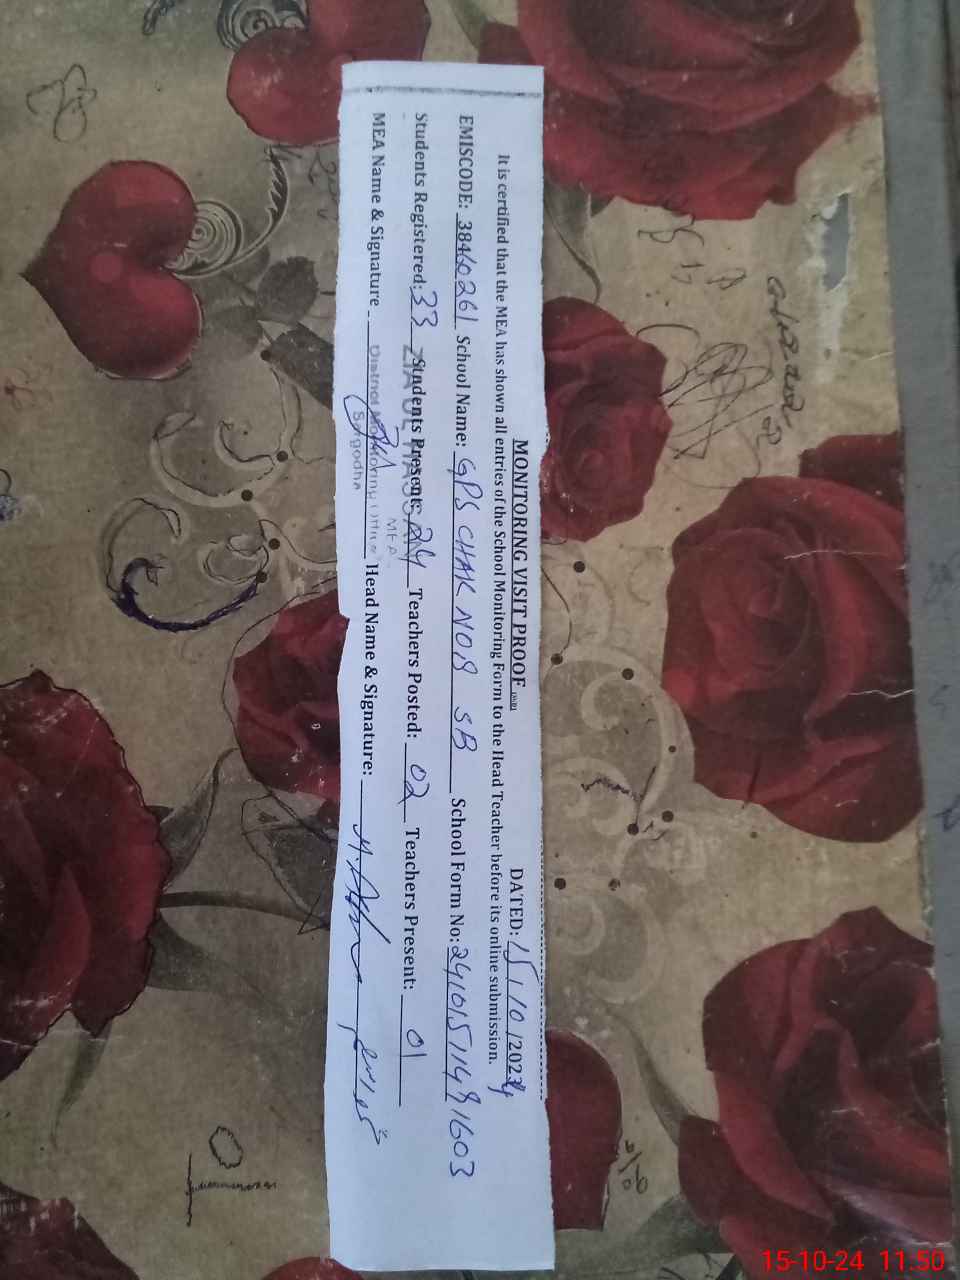 MONITORING VISIT PROOF DATED: 15/10/2024
It is certified that the MEA has shown all entries of the School Monitoring Form to the Head Teacher before its online submission.
EMISCODE: 38460261 School Name: GPS CHAK NO8 SB School Form No: 24101511491603
Students Registered: 33 Students Present: 24 Teachers Posted: 02 Teachers Present: 01
MEA Name & Signature Head Name & Signature:
ZIA UL HASSAN
MEA
District Monitoring Office
Sargodha
15-10-24 11:50